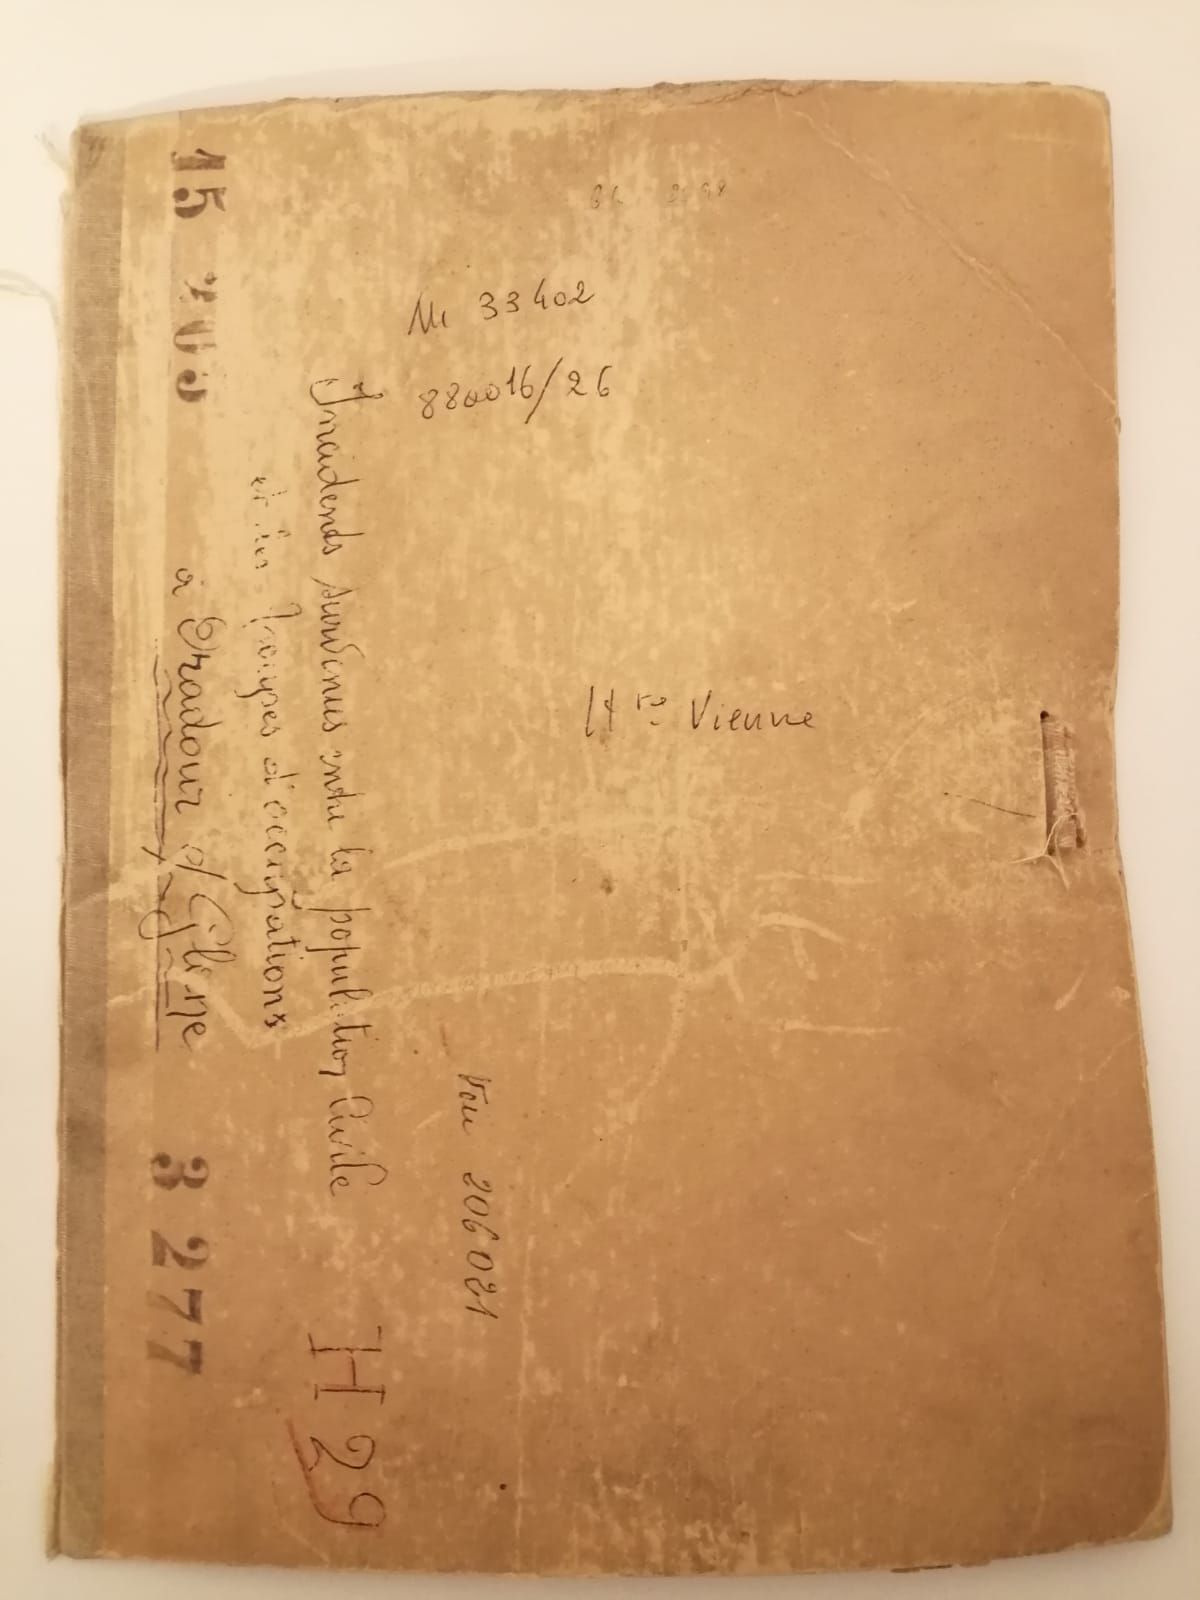 Mi 33402
880016/26
Hte Vienne
Incidents survenus entre la population Civile
et les Troupes d'occupations
à Oradour s/ Glane
Voir 206 021
H 29
15
3277